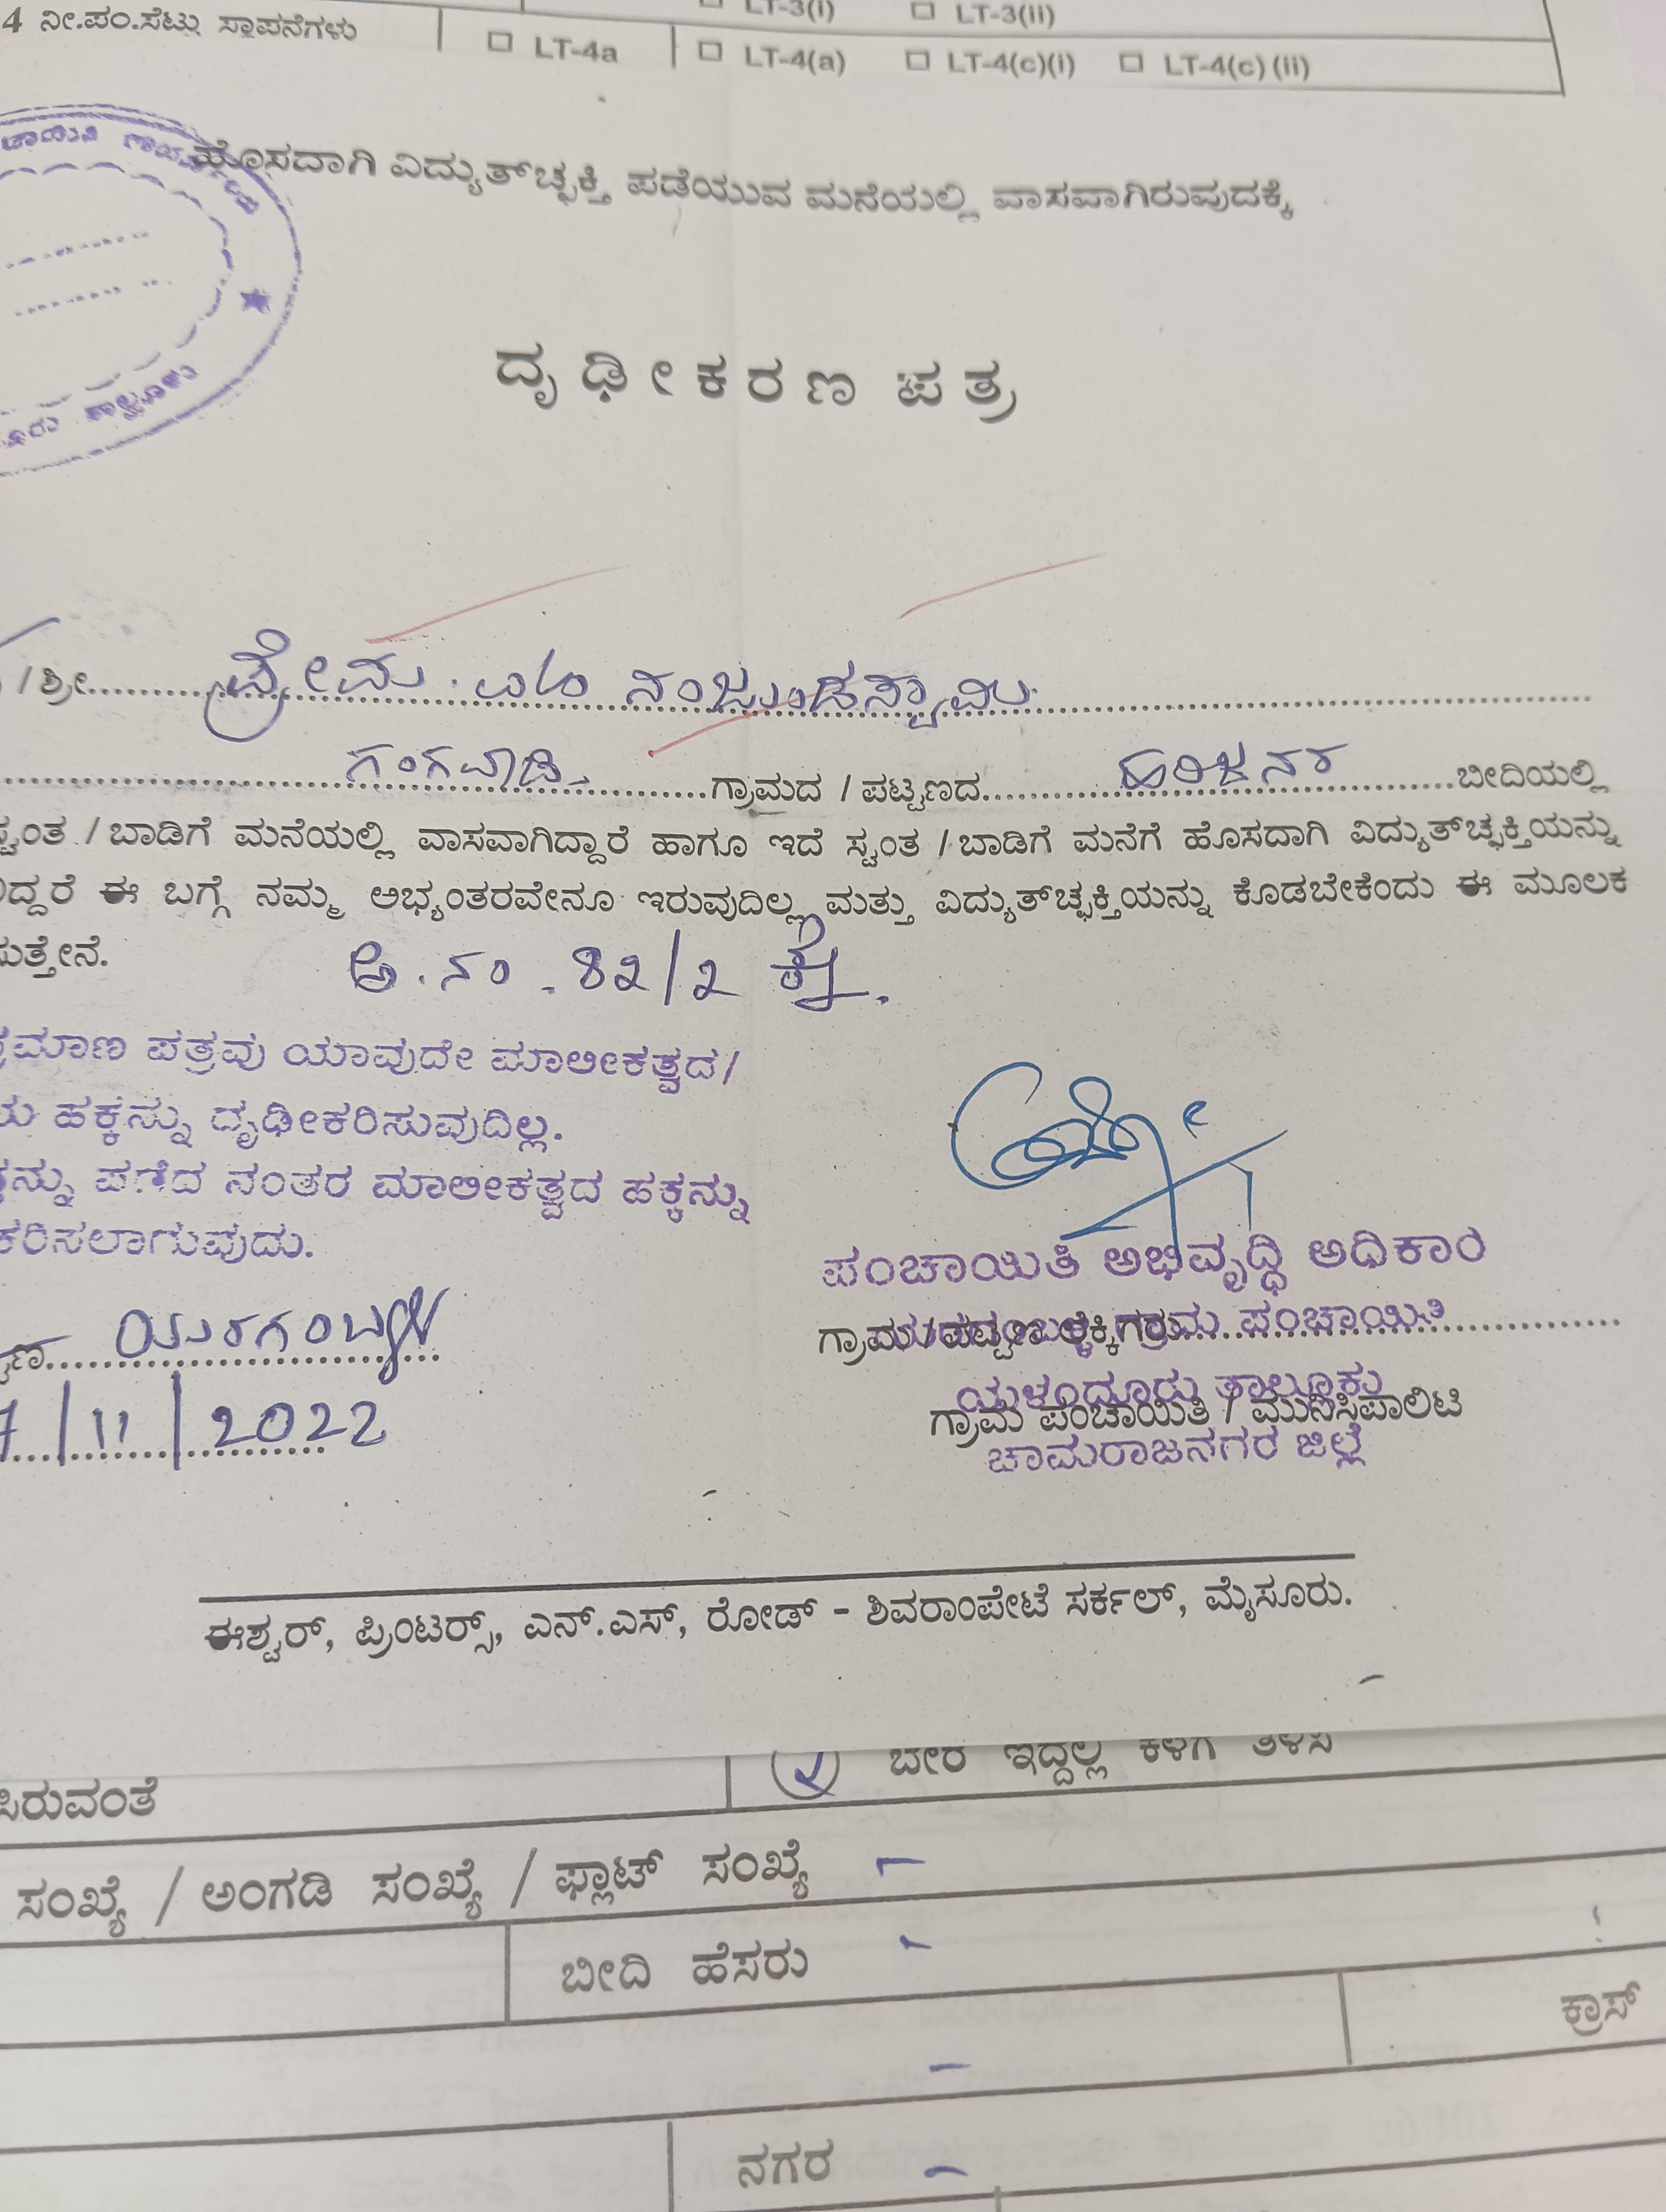 4 ನೀ.ಪಂ.ಸೆಟ್ಟು ಸ್ಥಾಪನೆಗಳು □ LT-4a □ LT-4(a) □ LT-4(c)(i) □ LT-4(c)(ii)
□ LT-3(i) □ LT-3(ii)
ಹೊಸದಾಗಿ ವಿದ್ಯುತ್‌ಚ್ಛಕ್ತಿ ಪಡೆಯುವ ಮನೆಯಲ್ಲಿ ವಾಸವಾಗಿರುವುದಕ್ಕೆ
ದೃಢೀಕರಣ ಪತ್ರ
/ ಶ್ರೀ ಪ್ರೇಮ. ನಂಜುಂಡಸ್ವಾಮಿ
ಗಂಗವಾಡಿ ಗ್ರಾಮದ / ಪಟ್ಟಣದ ಹರಿಜನರ ಬೀದಿಯಲ್ಲಿ
ಸ್ವಂತ / ಬಾಡಿಗೆ ಮನೆಯಲ್ಲಿ ವಾಸವಾಗಿದ್ದಾರೆ ಹಾಗೂ ಇದೆ ಸ್ವಂತ / ಬಾಡಿಗೆ ಮನೆಗೆ ಹೊಸದಾಗಿ ವಿದ್ಯುತ್‌ಚ್ಛಕ್ತಿಯನ್ನು
ದ್ದರೆ ಈ ಬಗ್ಗೆ ನಮ್ಮ ಅಭ್ಯಂತರವೇನೂ ಇರುವುದಿಲ್ಲ ಮತ್ತು ವಿದ್ಯುತ್‌ಚ್ಛಕ್ತಿಯನ್ನು ಕೊಡಬೇಕೆಂದು ಈ ಮೂಲಕ
ಸುತ್ತೇನೆ.
ಅ.ನಂ. 82/2
ಪ್ರಮಾಣ ಪತ್ರವು ಯಾವುದೇ ಮಾಲೀಕತ್ವದ/
ಯ ಹಕ್ಕನ್ನು ದೃಢೀಕರಿಸುವುದಿಲ್ಲ.
ನ್ನು ಪಡೆದ ನಂತರ ಮಾಲೀಕತ್ವದ ಹಕ್ಕನ್ನು
ಕರಿಸಲಾಗುವುದು.
ಪಂಚಾಯಿತಿ ಅಭಿವೃದ್ಧಿ ಅಧಿಕಾರಿ
ಗ್ರಾಮ / ಪಟ್ಟಣ ಲೆಕ್ಕಿಗರು
ಗ್ರಾಮ ಪಂಚಾಯಿತಿ
ಯಳಂದೂರು ತಾಲ್ಲೂಕು
ಗ್ರಾಮ ಪಂಚಾಯಿತಿ / ಮುನಿಸಿಪಾಲಿಟಿ
ಚಾಮರಾಜನಗರ ಜಿಲ್ಲೆ
ಯರಗಂಬಳ್ಳಿ
7/11/2022
ಈಶ್ವರ್, ಪ್ರಿಂಟರ್ಸ್, ಎನ್.ಎಸ್, ರೋಡ್ - ಶಿವರಾಂಪೇಟೆ ಸರ್ಕಲ್, ಮೈಸೂರು.
ಸಿರುವಂತೆ ಬೇರೆ ಇದ್ದಲ್ಲಿ ಕೆಳಗೆ ತಿಳಿಸಿ
ಸಂಖ್ಯೆ / ಅಂಗಡಿ ಸಂಖ್ಯೆ / ಫ್ಲಾಟ್ ಸಂಖ್ಯೆ -
ಬೀದಿ ಹೆಸರು -
ಕ್ರಾಸ್
-
ನಗರ -